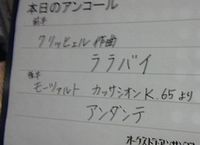 本日のアンコール
前半
クリッヒェル作曲
ララバイ
後半
モーツァルト カッサシオンK.65より
アンダンテ
オーケストラ・アンサンブル